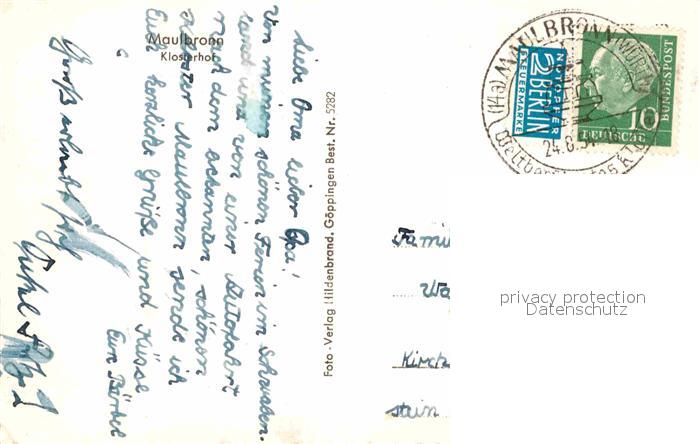 Maulbronn
Klosterhof
Liebe Oma lieber Opa!
Von meinen schönen Ferien im Schwaben-
land und von einer Autofahrt
nach dem bekannten, schönen
Kloster Maulbronn sende ich
Euch herzliche Grüße und Küsse
Eure Bärbel
Foto-Verlag Hildenbrand, Göppingen Best. Nr. 5282
(14a) MAULBRONN (WÜRTT)
24.8.5
NOTOPFER
2 BERLIN
STEUERMARKE
10
DEUTSCHE
BUNDESPOST
Fami
Wa
Kirch
stein
privacy protection
Datenschutz